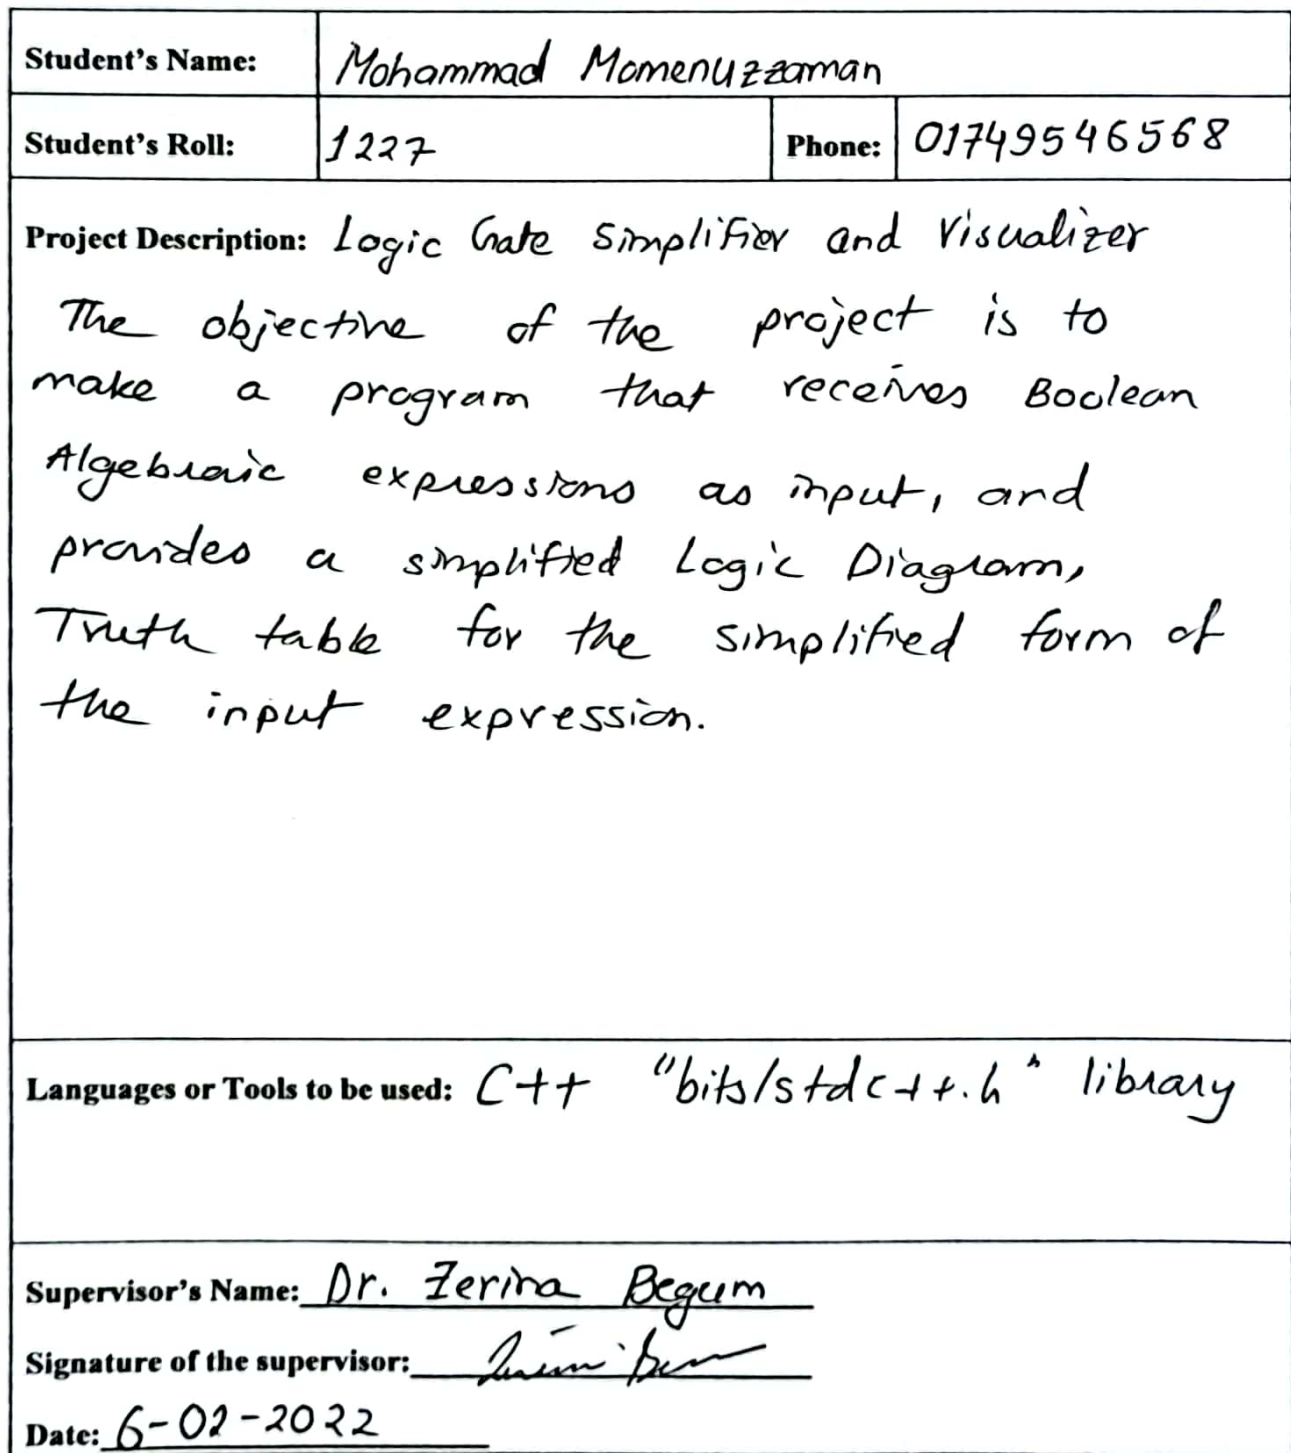 Student's Name: Mohammad Momenuzzaman
Student's Roll: 1227 Phone: 01749546568
Project Description: Logic Gate Simplifier and Visualizer
The objective of the project is to
make a program that receives Boolean
Algebraic expressions as input, and
provides a simplified Logic Diagram,
Truth table for the simplified form of
the input expression.
Languages or Tools to be used: C++ "bits/stdc++.h" library
Supervisor's Name: Dr. Zerina Begum
Signature of the supervisor:
Date: 6-02-2022